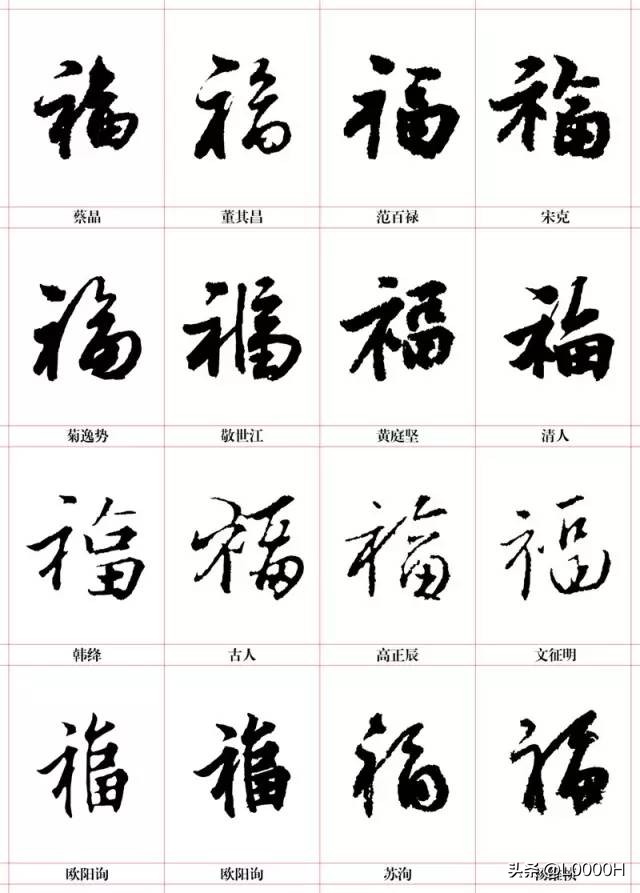 福 福 福 福
蔡晶 董其昌 范百禄 宋克
福 福 福 福
菊逸势 敬世江 黄庭坚 清人
福 福 福 福
韩绛 古人 高正辰 文征明
福 福 福 福
欧阳询 欧阳询 苏洵
头条@L0000H